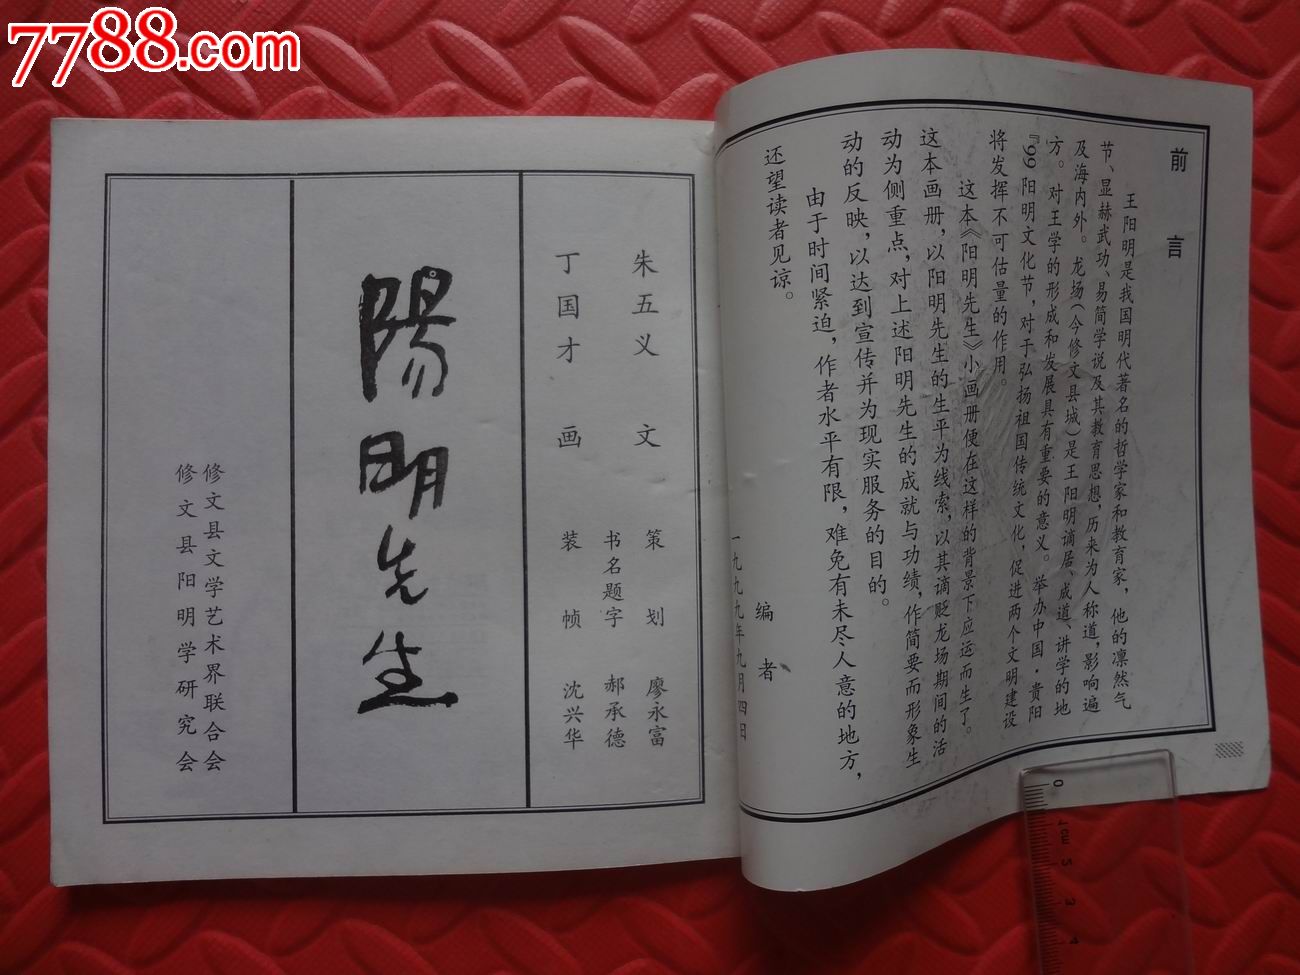 7788.com
朱五义 文
丁国才 画
策划 廖永富
书名题字 郝承德
装帧 沈兴华
陽明先生
修文县文学艺术界联合会
修文县阳明学研究会
前言
王阳明是我国明代著名的哲学家和教育家，他的凛然气
节、显赫武功、易简学说及其教育思想，历来为人称道，影响遍
及海内外。龙场（今修文县城）是王阳明谪居、成道、讲学的地
方。对王学的形成和发展具有重要的意义。举办中国·贵阳
『99阳明文化节，对于弘扬祖国传统文化，促进两个文明建设
将发挥不可估量的作用。
这本《阳明先生》小画册便在这样的背景下应运而生了。
这本画册，以阳明先生的生平为线索，以其谪贬龙场期间的活
动为侧重点，对上述阳明先生的成就与功绩，作简要而形象生
动的反映，以达到宣传并为现实服务的目的。
由于时间紧迫，作者水平有限，难免有未尽人意的地方，
还望读者见谅。
编者
一九九九年九月四日
0 1cm